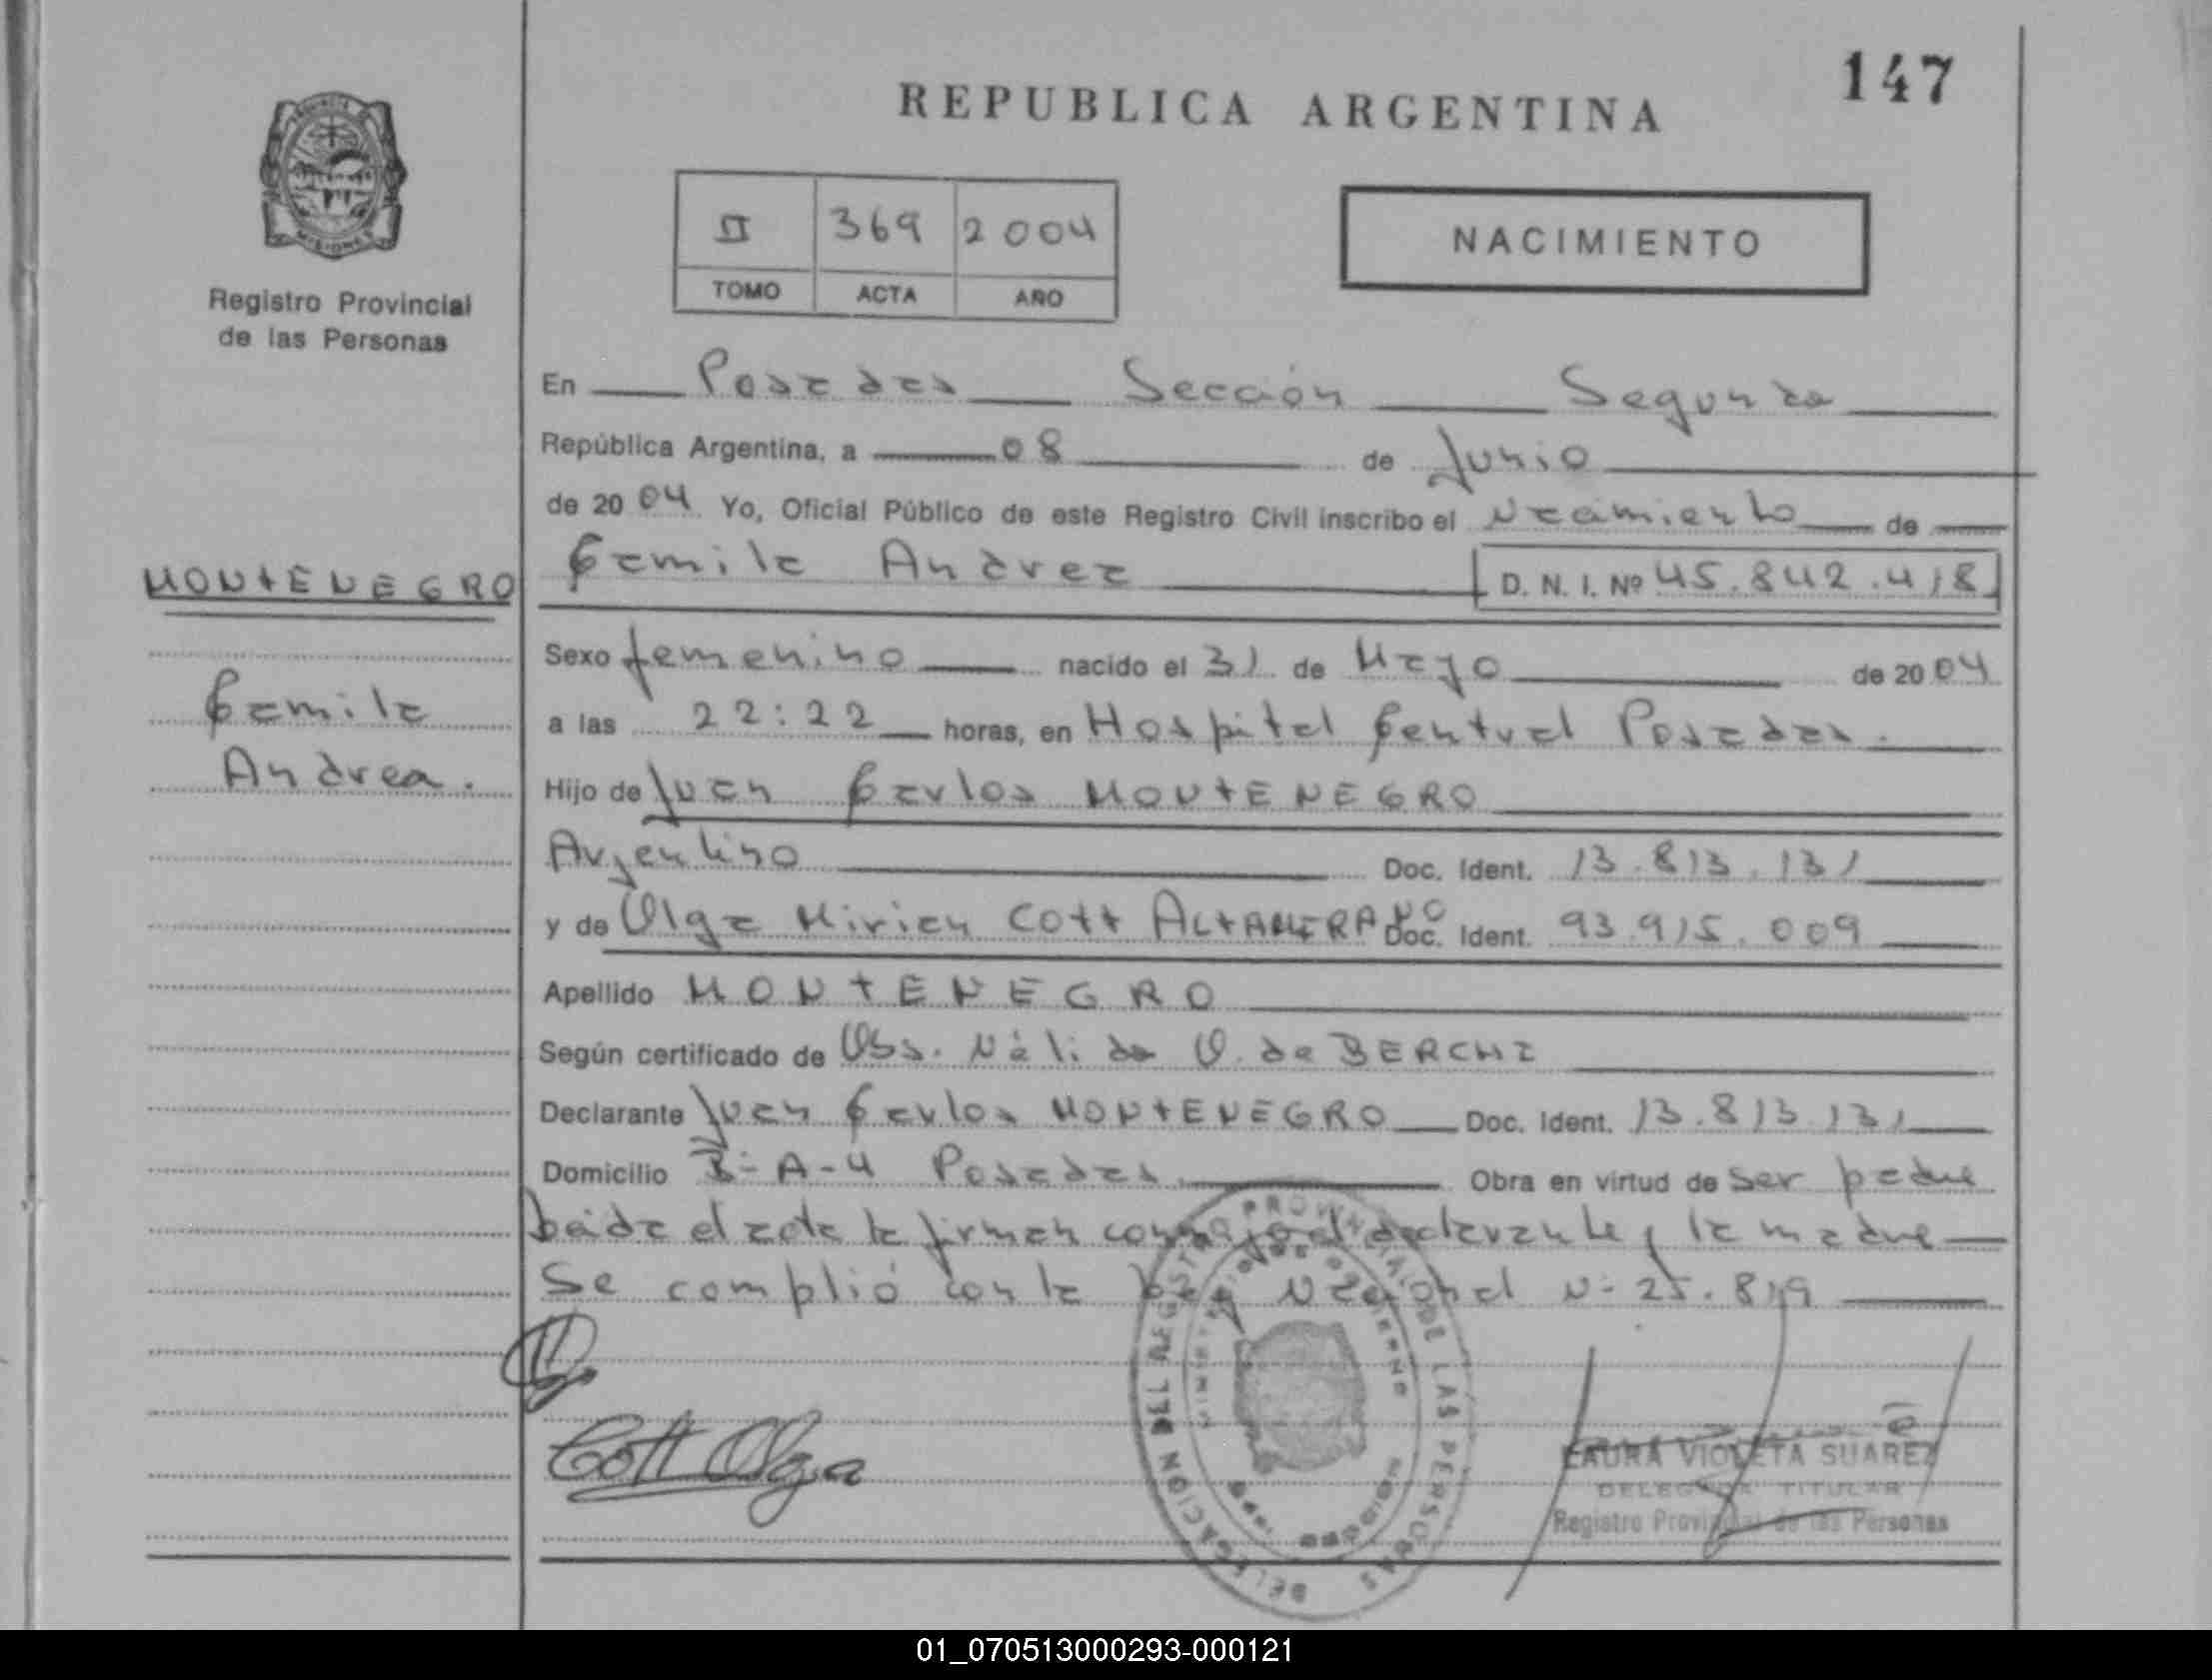 147
REPUBLICA ARGENTINA
II 369 2004
TOMO ACTA AÑO
NACIMIENTO
PROVINCIA
MISIONES
Registro Provincial
de las Personas
En Posadas Sección Segunda
República Argentina, a 08 de Junio
de 2004 Yo, Oficial Público de este Registro Civil inscribo el Nacimiento de
MONTENEGRO
Camila Andrea D. N. I. Nº 45.842.418
Sexo femenino nacido el 31 de Mayo de 2004
Camila
a las 22:22 horas, en Hospital Central Posadas.
Andrea.
Hijo de Juan Carlos MONTENEGRO
Argentino Doc. Ident. 13.813.131
y de Olga Mirian COTT ALTAMIRANO Doc. Ident. 93.915.009
Apellido MONTENEGRO
Según certificado de Obs. Nélida O. de BERCHI
Declarante Juan Carlos MONTENEGRO Doc. Ident. 13.813.131
Domicilio A-4 Posadas Obra en virtud de ser padre
Leída el acta la firman conmigo el declarante y la madre
Se complió con la Ley Nacional N- 25.819
Cott Olga
DELEGACION DEL REGISTRO PROVINCIAL DE LAS PERSONAS
MINISTERIO DE GOBIERNO
LAURA VIOLETA SUAREZ
DELEGADA TITULAR
Registro Provincial de las Personas
01_070513000293-000121